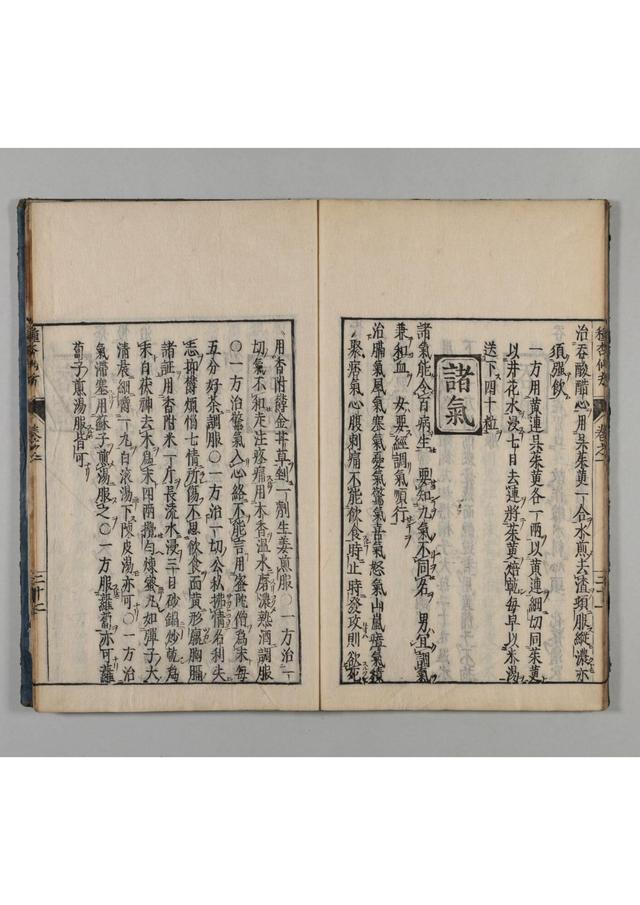 治吞酸醋心用吳茱萸一合水煎去渣頓服縱濃亦
須強飲
一方用黃連吳茱萸各一兩以黃連細切同茱萸
以井花水浸七日去連將茱萸焙乾每早以米湯
送下四十粒
諸氣
諸氣能令百病生 要知九氣不同名 男宜調氣
兼和血 女要經調氣順行
治膈氣風氣寒氣憂氣驚氣喜氣怒氣山嵐瘴氣積
聚痞氣心腹刺痛不能飲食時止時發攻則欲死
用香附 金甘草 一 剉生姜煎服〇一方治一
切氣不和走注疼痛用木香溫水磨濃熱酒調服
〇一方治驚氣入心絡不能言用蜜陀僧為末每
五分好茶調服〇一方治一切公私拂情名利失
志抑鬱煩惱七情所傷不思飲食面黃形羸胸膈
諸証用香附米一斤長流水浸三日砂鍋炒乾為
末白茯神去木為末四兩攪勻煉蜜丸如彈子大
清晨細嚼一丸白滾湯下陳皮湯亦可〇一方治
氣滯塞用蘇子煎湯服之〇一方服蘿蔔亦可蘿
蔔子煎湯服皆可
種杏仙方
卷之一